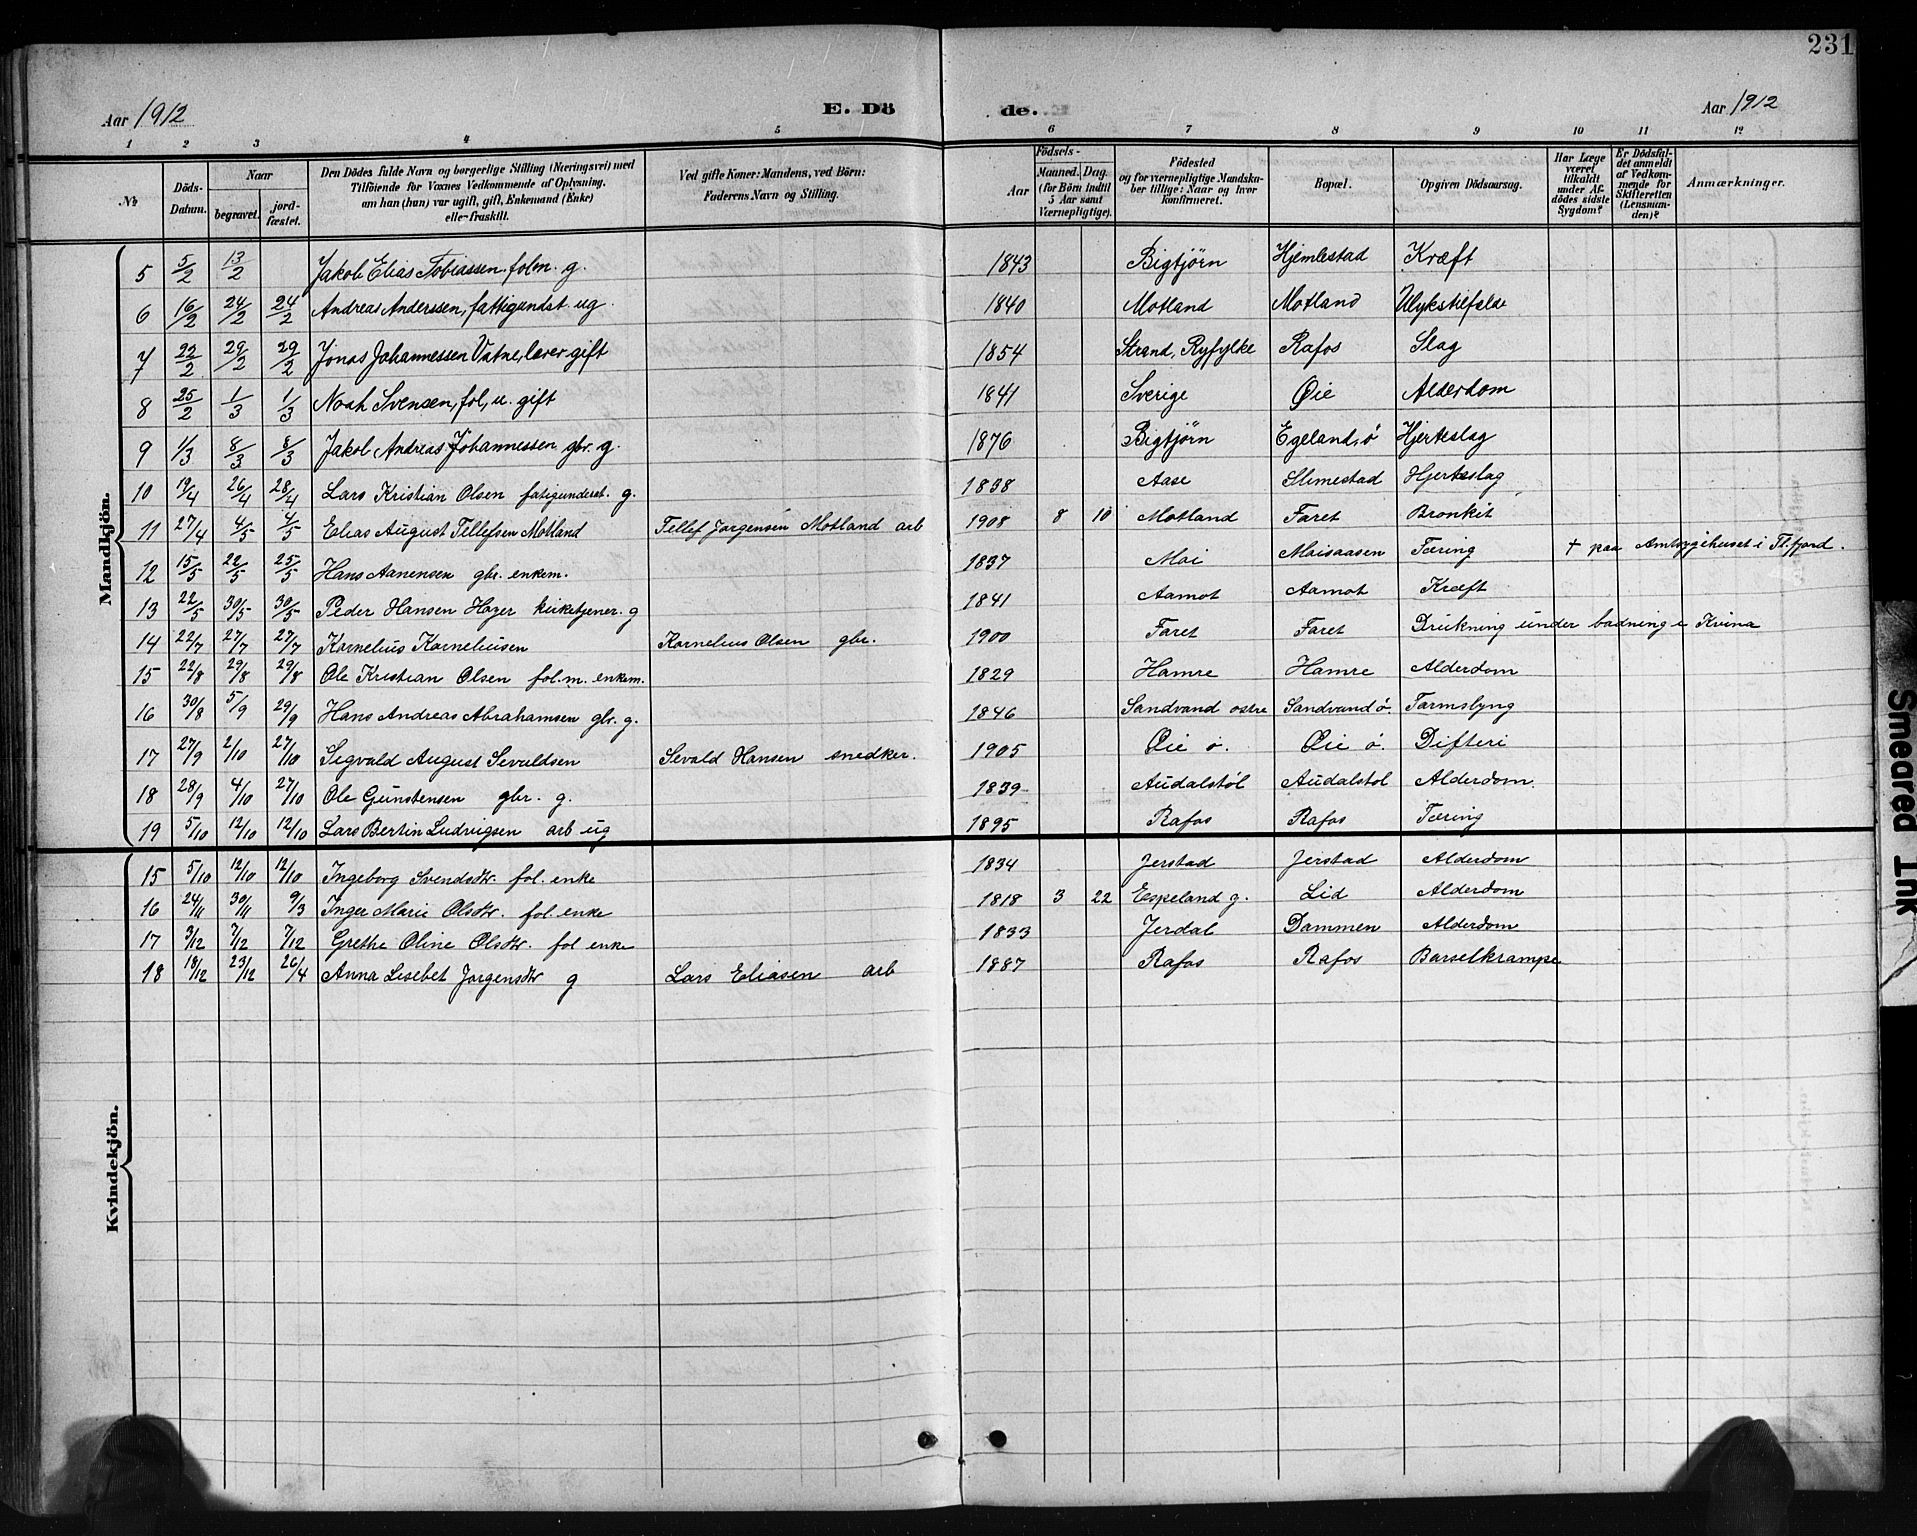 231
Aar 1912 E. Dö de. Aar 1912
1 2 3 4 5 6 7 8 9 10 11 12
No
Döds-Datum.
Naar
begravet.
jord-fæstet.
Den Dödes fulde Navn og borgerlige Stilling (Næringsvei) med
Tilföiende for Voxnes Vedkommende af Oplysning,
om han (hun) var ugift, gift, Enkemand (Enke)
eller fraskilt.
Ved gifte Koner: Mandens, ved Börn:
Faderens Navn og Stilling.
Födsels-
Aar
Maaned. Dag.
(for Börn indtil
5 Aar samt
Værnepligtige).
Födested
og for værnepligtige Mandska-
ber tillige: Naar og hvor
konfirmeret.
Bopæl.
Opgiven Dödsaarsag.
Har Læge
været
tilkaldt
under Af-
dödes sidste
Sygdom?
Er Dödsfal-
det anmeldt
af Vedkom-
mende for
Skifteretten
(Lensman-
den)?
Anmærkninger.
Mandkjön.
5 5/2 13/2 Jakob Elias Tobiassen. folm. g. 1843 Bigtjörn Hjemlestad Kræft
6 16/2 24/2 24/2 Andreas Anderssen, fattigundst ug. 1840 Motland Motland Ulykstilfælde
7 22/2 29/2 29/2 Jonas Johannessen Vatne, lærer gift 1854 Strand, Ryfylke Rafos Slag
8 25/2 1/3 1/3 Noah Svensen, fol, u. gift 1841 Sverige Øie Alderdom
9 1/3 8/3 8/3 Jakob Andreas Johannessen gbr. g. 1876 Bigtjörn Egeland, ö Hjerteslag
10 19/4 26/4 28/4 Lars Kristian Olsen fatigunderst. g. 1838 Aase Slimestad Hjerteslag
11 27/4 4/5 4/5 Elias August Tellefsen Motland Tellef Jørgensen Motland arb 1908 8 10 Motland Faret Bronkit
12 15/5 22/5 25/5 Hans Aanensen gbr. enkem. 1837 Moi Moisaasen Tæring † paa Amtssygehuset i Fl.fjord.
13 22/5 30/5 30/5 Peder Hansen Høyer kirketjener. g 1841 Aamot Aamot Kræft
14 22/7 27/7 27/7 Kornelius Korneliusen Kornelius Olsen gbr. 1900 Faret Faret Drukning under badning i Kvina
15 22/8 29/8 29/8 Ole Kristian Olsen fol.m. enkem. 1829 Hamre Hamre Alderdom
16 30/8 5/9 29/9 Hans Andreas Abrahamsen gbr. g. 1846 Sandvand østre Sandvand ö. Tarmslyng
17 27/9 2/10 27/10 Sigvald August Sevaldsen Sevald Hansen snedker. 1905 Øie ö. Øie ö. Difteri
18 28/9 4/10 27/10 Ole Gunstensen gbr. g. 1839 Audalstøl Audalstøl Alderdom.
19 5/10 12/10 12/10 Lars Bertin Ludvigsen arb ug 1895 Rafos Rafos Tæring
Kvindekjön.
15 5/10 12/10 12/10 Ingeborg Svendsdtr. fol. enke 1834 Jerstad Jerstad Alderdom
16 24/11 30/11 9/3 Inger Marie Olsdtr. fol enke 1818 3 22 Espeland g. Lid Alderdom
17 3/12 7/12 7/12 Grethe Oline Olsdtr. fol enke 1833 Jerdal Dammen Alderdom
18 18/12 23/12 26/4 Anna Lisebet Jørgensdtr g Lars Eliasen arb 1887 Rafos Rafos Barselkrampe
Smeared Ink